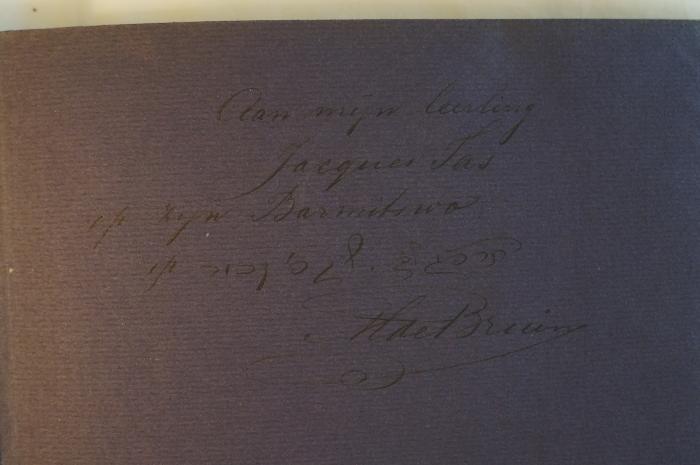 Aan mijn leerling
Jacques Tas
op zijn Barmitswo
HdeBruin